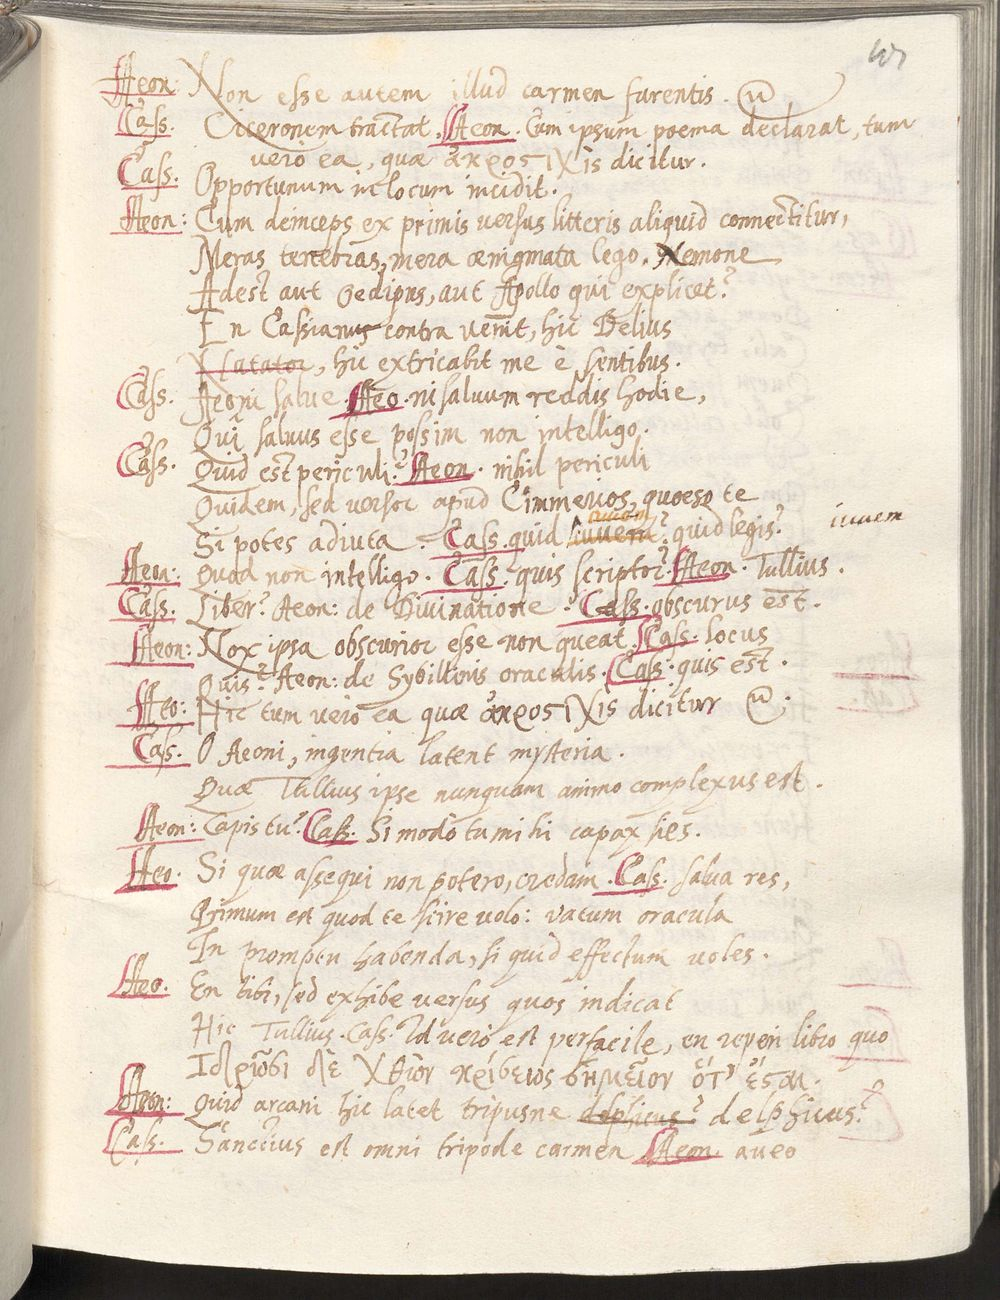 Aeon. Non esse autem illud carmen furentis.
Cass. Ciceronem tractat. Aeon. Cum ipsum poema declarat, tum
vero ea, quae ἀκροςιχis dicitur.
Cass. Opportunum in locum incidit.
Aeon: Cum deinceps ex primis versus litteris aliquid connectitur,
Meras tenebras, mera aenigmata lego. Nemone
Adest aut Oedipus, aut Apollo qui explicet?
En Cassianus contra venit, hic Delius
Natator, hic extricabit me è sentibus.
Cass. Aeoni salue. Aeo. ni saluum reddis hodie,
Qui saluus esse possim non intelligo.
Cass. Quid est periculi? Aeon. nihil periculi
Quidem, sed versor apud Cimmerios, quoeso te
Si potes adiuta. Cass. quid iuuem? quid legis? iuuem
Aeon: Quod non intelligo. Cass. quis scriptor? Aeon. Tullius.
Cass. Liber? Aeon: de Divinatione. Cass. obscurus est.
Aeon: Nox ipsa obscurior esse non queat. Cass. locus
Quis? Aeon: de Sybillinis oraculis. Cass. quis est.
Aeo: Hic tum vero ea quae ἀκροςιχis dicitur
Cass. O Aeoni, ingentia latent mysteria.
Quae Tullius ipse nunquam animo complexus est.
Aeon: Capis tu? Cass. Si modo tu mihi capax sies.
Aeo. Si quae assequi non potero, credam. Cass. salua res,
Primum est quod te scire volo: vatum oracula
In promptu habenda, si quid effectum voles.
Aeo. En tibi, sed exhibe versus quos indicat
Hic Tullius. Cass. Id vero est perfacile, en reperi libro quo
Ἱδρώσει δὲ χθὼν κρίσεως σημεῖον ὅτ' ἔσται.
Aeon: Quid arcani hic latet tripusne delphicus? delphicus?
Cass. Sanctius est omni tripode carmen Aeon. aveo